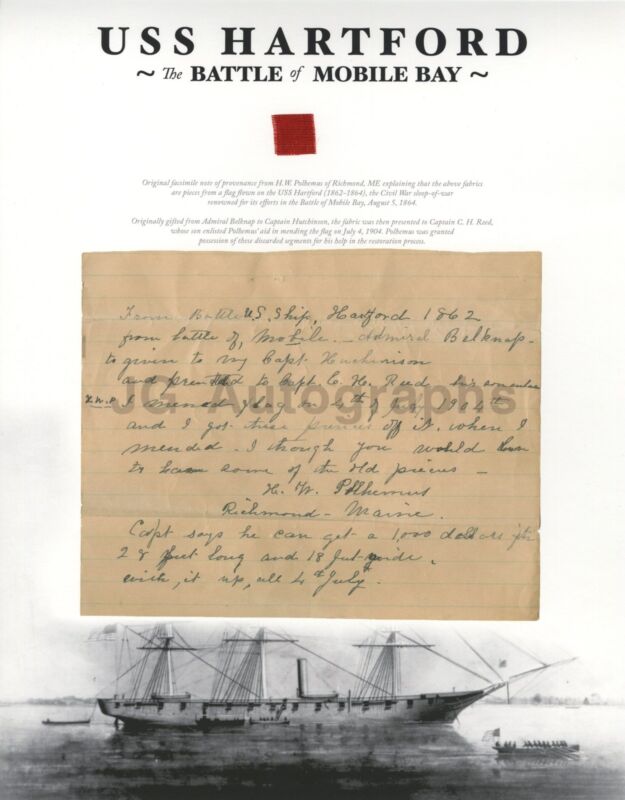 USS HARTFORD
~ The BATTLE of MOBILE BAY ~
Original facsimile note of provenance from H.W. Polhemus of Richmond, ME explaining that the above fabrics
are pieces from a flag flown on the USS Hartford (1862-1864), the Civil War sloop-of-war
renowned for its efforts in the Battle of Mobile Bay, August 5, 1864.
Originally gifted from Admiral Belknap to Captain Hutchinson, the fabric was then presented to Captain C. H. Reed,
whose son enlisted Polhemus' aid in mending the flag on July 4, 1904. Polhemus was granted
possession of these discarded segments for his help in the restoration process.
From Battle U.S. Ship, Hartford 1862
from battle of, Mobile. - Admiral Belknap -
to given to my Capt. Hutchinson
and presented to Capt. C. H. Reed, his
H.W.P. I mened flag on 4th of July, 1904th
and I got these pieces off it, when I
mended. I though you would love
to have some of the old pieces -
H. W. Polhemus
Richmond - Maine.
Capt says he can get a 1,000 dollars for
28 feet long and 18 fut wide.
with, it up, all 4th July.
JG Autographs